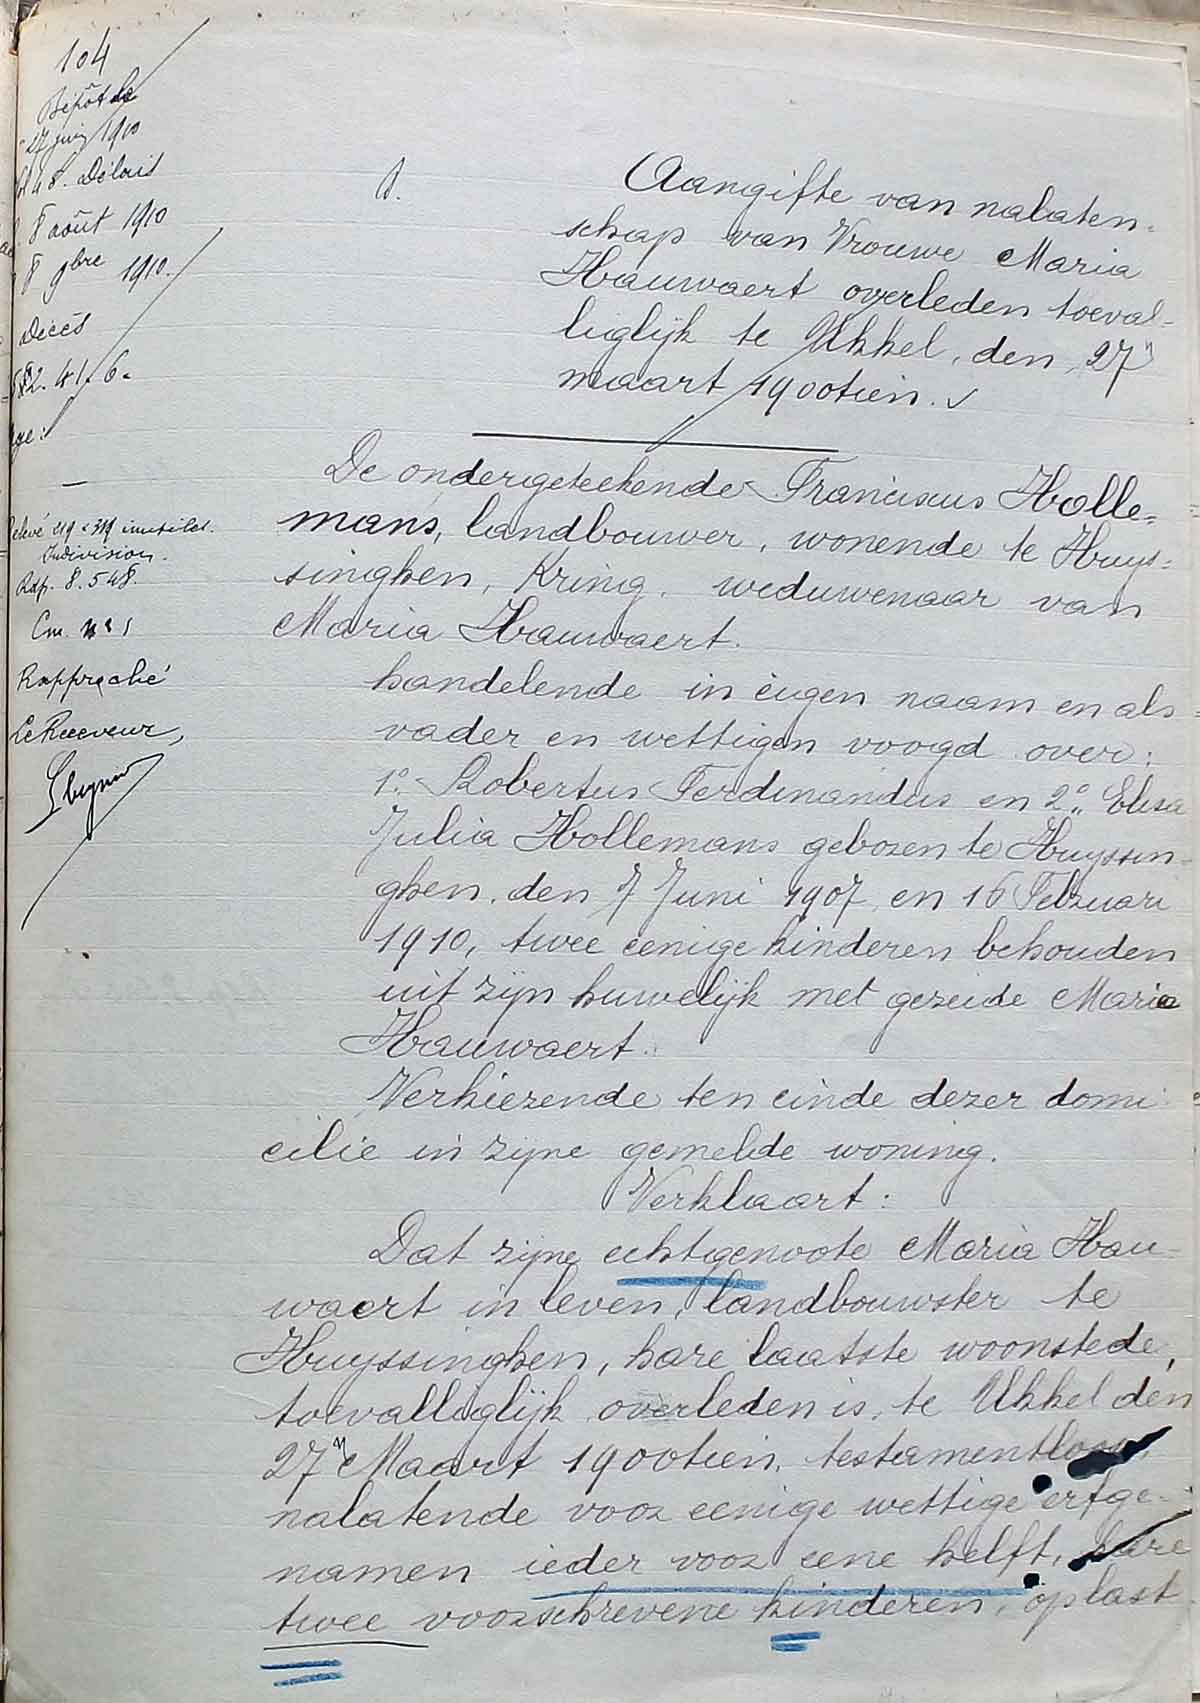 104
Dépôt le
27 juin 1910
48. Délais
8 août 1910
8 9bre 1910.
Décès
52. 41. 6.
Relevé 219 & 319 inutiles.
Indivision.
Rép. 8.548.
Rapproché
Le Receveur,
Aangifte van nalaten-
schap van Vrouwe Maria
Hauwaert overleden toeval-
liglijk te Ukkel, den 27n
maart 1900tien.
De ondergeteekende Franciscus Holle=
mans, landbouwer, wonende te Huys=
singhen, Kring, weduwenaar van
Maria Hauwaert.
handelende in eigen naam en als
vader en wettigen voogd over:
1° Robertus Ferdinandus en 2° Elisa
Julia Hollemans geboren te Huyssin-
ghen, den 7 Juni 1907 en 16 Februari
1910, twee eenige kinderen behouden
uit zijn huwelijk met gezeide Maria
Hauwaert.
Verkiezende ten einde dezer domi
cilie in zijne gemelde woning.
Verklaart:
Dat zijne echtgenoote Maria Hau-
waert in leven, landbouwster te
Huyssinghen, hare laatste woonstede,
toevalliglijk overleden is, te Ukkel den
27n Maart 1900tien, testamentloos
nalatende voor eenige wettige erfge-
namen ieder voor eene helft, hare
twee voorschrevene kinderen, op last